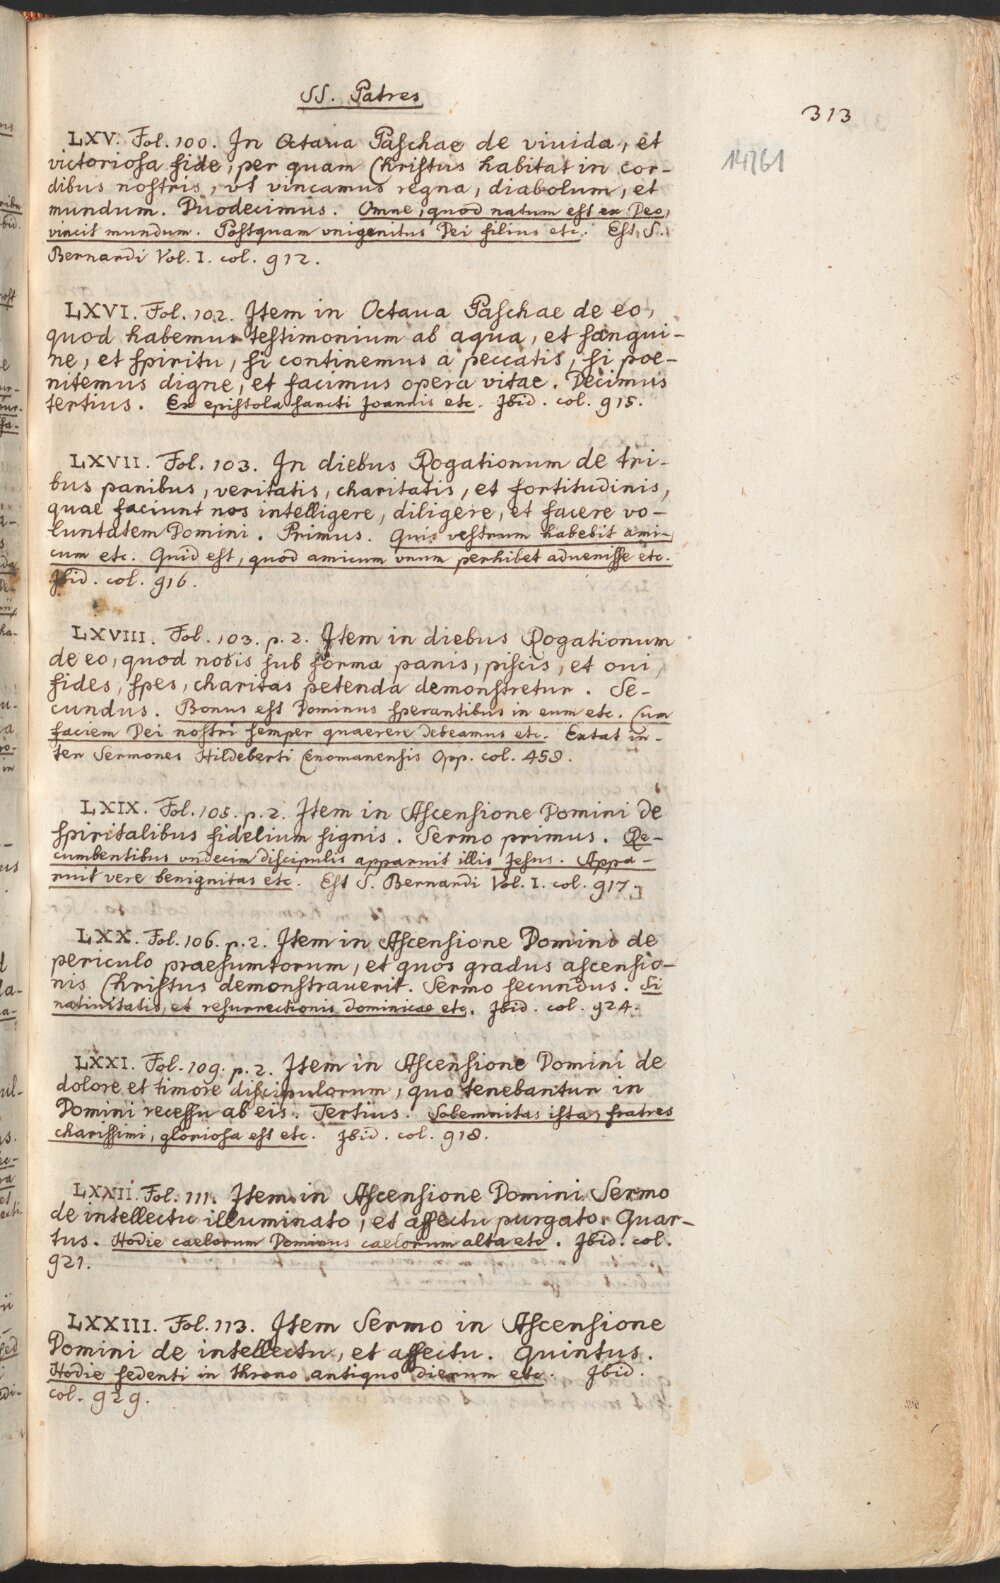 SS. Patres
313
14761
LXV. Fol. 100. In Octava Paschae de vivida, et
victoriosa fide, per quam Christus habitat in cor-
dibus nostris, vt vincamus regna, diabolum, et
mundum. Duodecimus. Omne, quod natum est ex Deo,
vincit mundum. Postquam vnigenitus Dei filius etc. Est S.
Bernardi Vol. I. col. 912.
LXVI. Fol. 102. Item in Octaua Paschae de eo,
quod habemus testimonium ab aqua, et sangui-
ne, et spiritu, si continemus a peccatis, si poe-
nitemus digne, et facimus opera vitae. Decimus
tertius. Ex epistola sancti Joannis etc. Ibid. col. 915.
LXVII. Fol. 103. In diebus Rogationum de tri-
bus panibus, veritatis, charitatis, et fortitudinis,
quae faciunt nos intelligere, diligere, et facere vo-
luntatem Domini. Primus. Quis vestrum habebit ami-
cum etc. Quid est, quod amicum vnum perhibet aduenisse etc.
Ibid. col. 916.
LXVIII. Fol. 103. p. 2. Item in diebus Rogationum
de eo, quod nobis sub forma panis, piscis, et oui,
fides, spes, charitas petenda demonstretur. Se-
cundus. Bonus est Dominus sperantibus in eum etc. Cum
faciem Dei nostri semper quaerere debeamus etc. Extat in-
ter Sermones Hildeberti Cenomanensis Opp. col. 458.
LXIX. Fol. 105. p. 2. Item in Ascensione Domini de
spiritalibus fidelium signis. Sermo primus. Re-
cumbentibus vndecim discipulis apparuit illis Jesus. Appa-
ruit vere benignitas etc. Est S. Bernardi Vol. I. col. 917.
LXX. Fol. 106. p. 2. Item in Ascensione Domini de
periculo praesumtorum, et quos gradus ascensio-
nis Christus demonstrauerit. Sermo secundus. Si
natiuitatis, et resurrectionis dominicae etc. Ibid. col. 924.
LXXI. Fol. 109. p. 2. Item in Ascensione Domini de
dolore et timore discipulorum, quo tenebantur in
Domini recessu ab eis. Tertius. Solemnitas ista, fratres
charissimi, gloriosa est etc. Ibid. col. 918.
LXXII. Fol. 111. Item in Ascensione Domini Sermo
de intellectu illuminato, et affectu purgato. Quar-
tus. Hodie caelorum Dominus caelorum alta etc. Ibid. col.
921.
LXXIII. Fol. 113. Item Sermo in Ascensione
Domini de intellectu, et affectu. Quintus.
Hodie sedenti in throno antiquo dierum etc. Ibid.
col. 929.